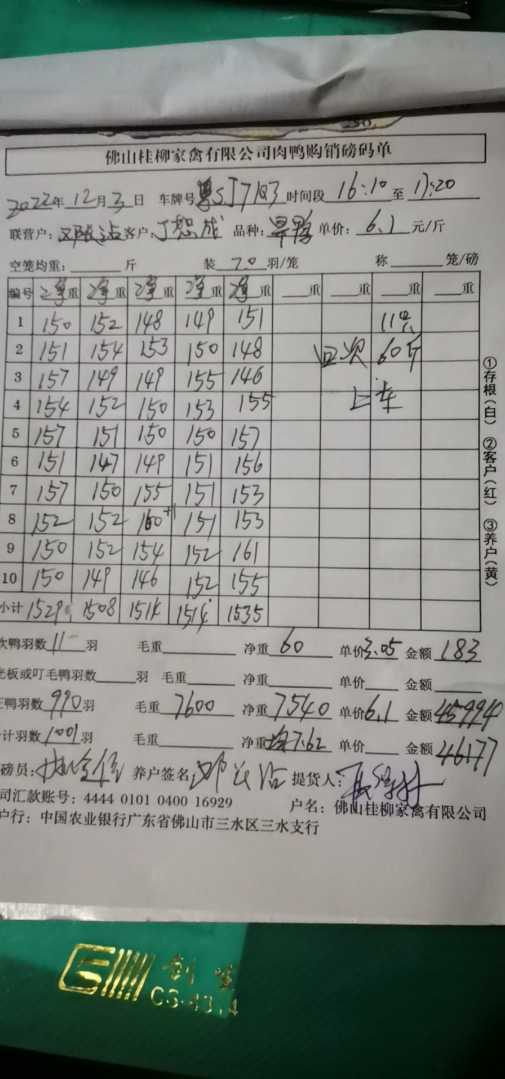 佛山桂柳家禽有限公司肉鸭购销磅码单
2022年12月3日 车牌号 粤SJ7183 时间段 16:10 至 17:20
联营户: 客户: 丁 成 品种: 单价: 6.1 元/斤
空笼均重: 斤 装 7.0 羽/笼 称 笼/磅
编号 净重 净重 净重 净重 净重 重 重 重 重
1 150 152 148 149 151 11只
2 151 154 153 150 148 次 60斤
3 157 149 149 155 146 上车
4 154 152 150 153 155
5 157 151 150 150 157
6 151 147 149 151 156
7 157 150 155 151 153
8 152 152 160 151 153
9 150 152 154 152 161
10 150 149 146 152 155
小计 1529 1508 1514 1514 1535
次鸭羽数 11 羽 毛重 净重 60 单价 3.05 金额 183
光板或叮毛鸭羽数 羽 毛重 净重 单价 金额
正鸭羽数 990 羽 毛重 7600 净重 7540 单价 6.1 金额 45994
计羽数 1001 羽 毛重 净重 均7.62 单价 金额 46177
磅员: 养户签名: 提货人:
司汇款账号: 4444 0101 0400 16929 户名: 佛山桂柳家禽有限公司
户行: 中国农业银行广东省佛山市三水区三水支行
①存根(白) ②客户(红) ③养户(黄)